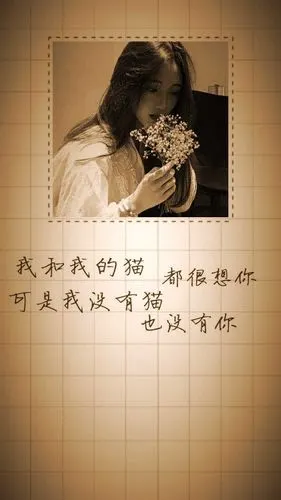 我和我的猫 都很想你
可是我没有猫
也没有你